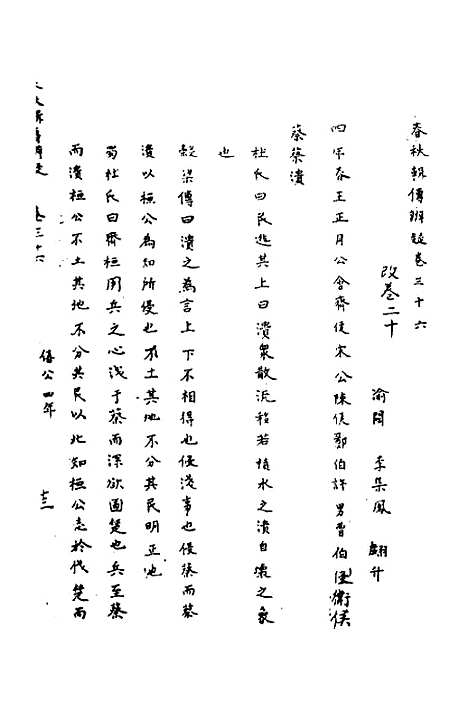 春秋輯傳辨疑卷三十六
改卷二十
渝關 李集鳳 翽升
四年春王正月公會齊侯宋公陳侯鄭伯許男曹伯侵衛侯
蔡蔡潰
杜氏曰民逃其上曰潰衆散流移若積水之潰自壞之象
也
穀梁傳曰潰之為言上下不相得也侵淺事也侵蔡而蔡
潰以桓公為知所侵也不土其地不分其民明正也
杜氏曰齊桓用兵之心浅于蔡而深欲圖楚也兵至蔡
而潰桓公不土其地不分其民以此知桓公志於伐楚而
春秋輯傳辨疑 卷三十六
僖公四年